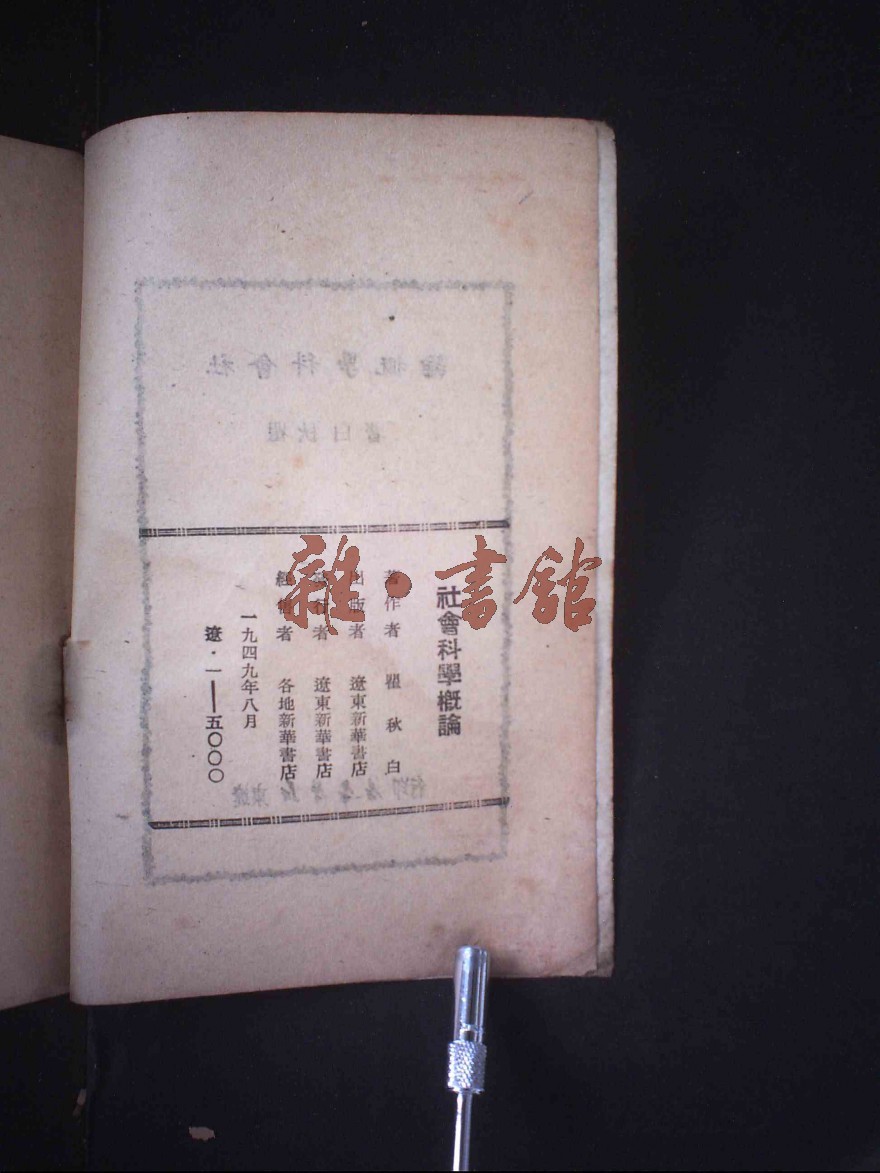 社會科學概論
著作者 瞿秋白
出版者 遼東新華書店
發行者 遼東新華書店
經售者 各地新華書店
一九四九年八月
遼·一——五〇〇〇
雜·書館
社會科學概論
瞿秋白著